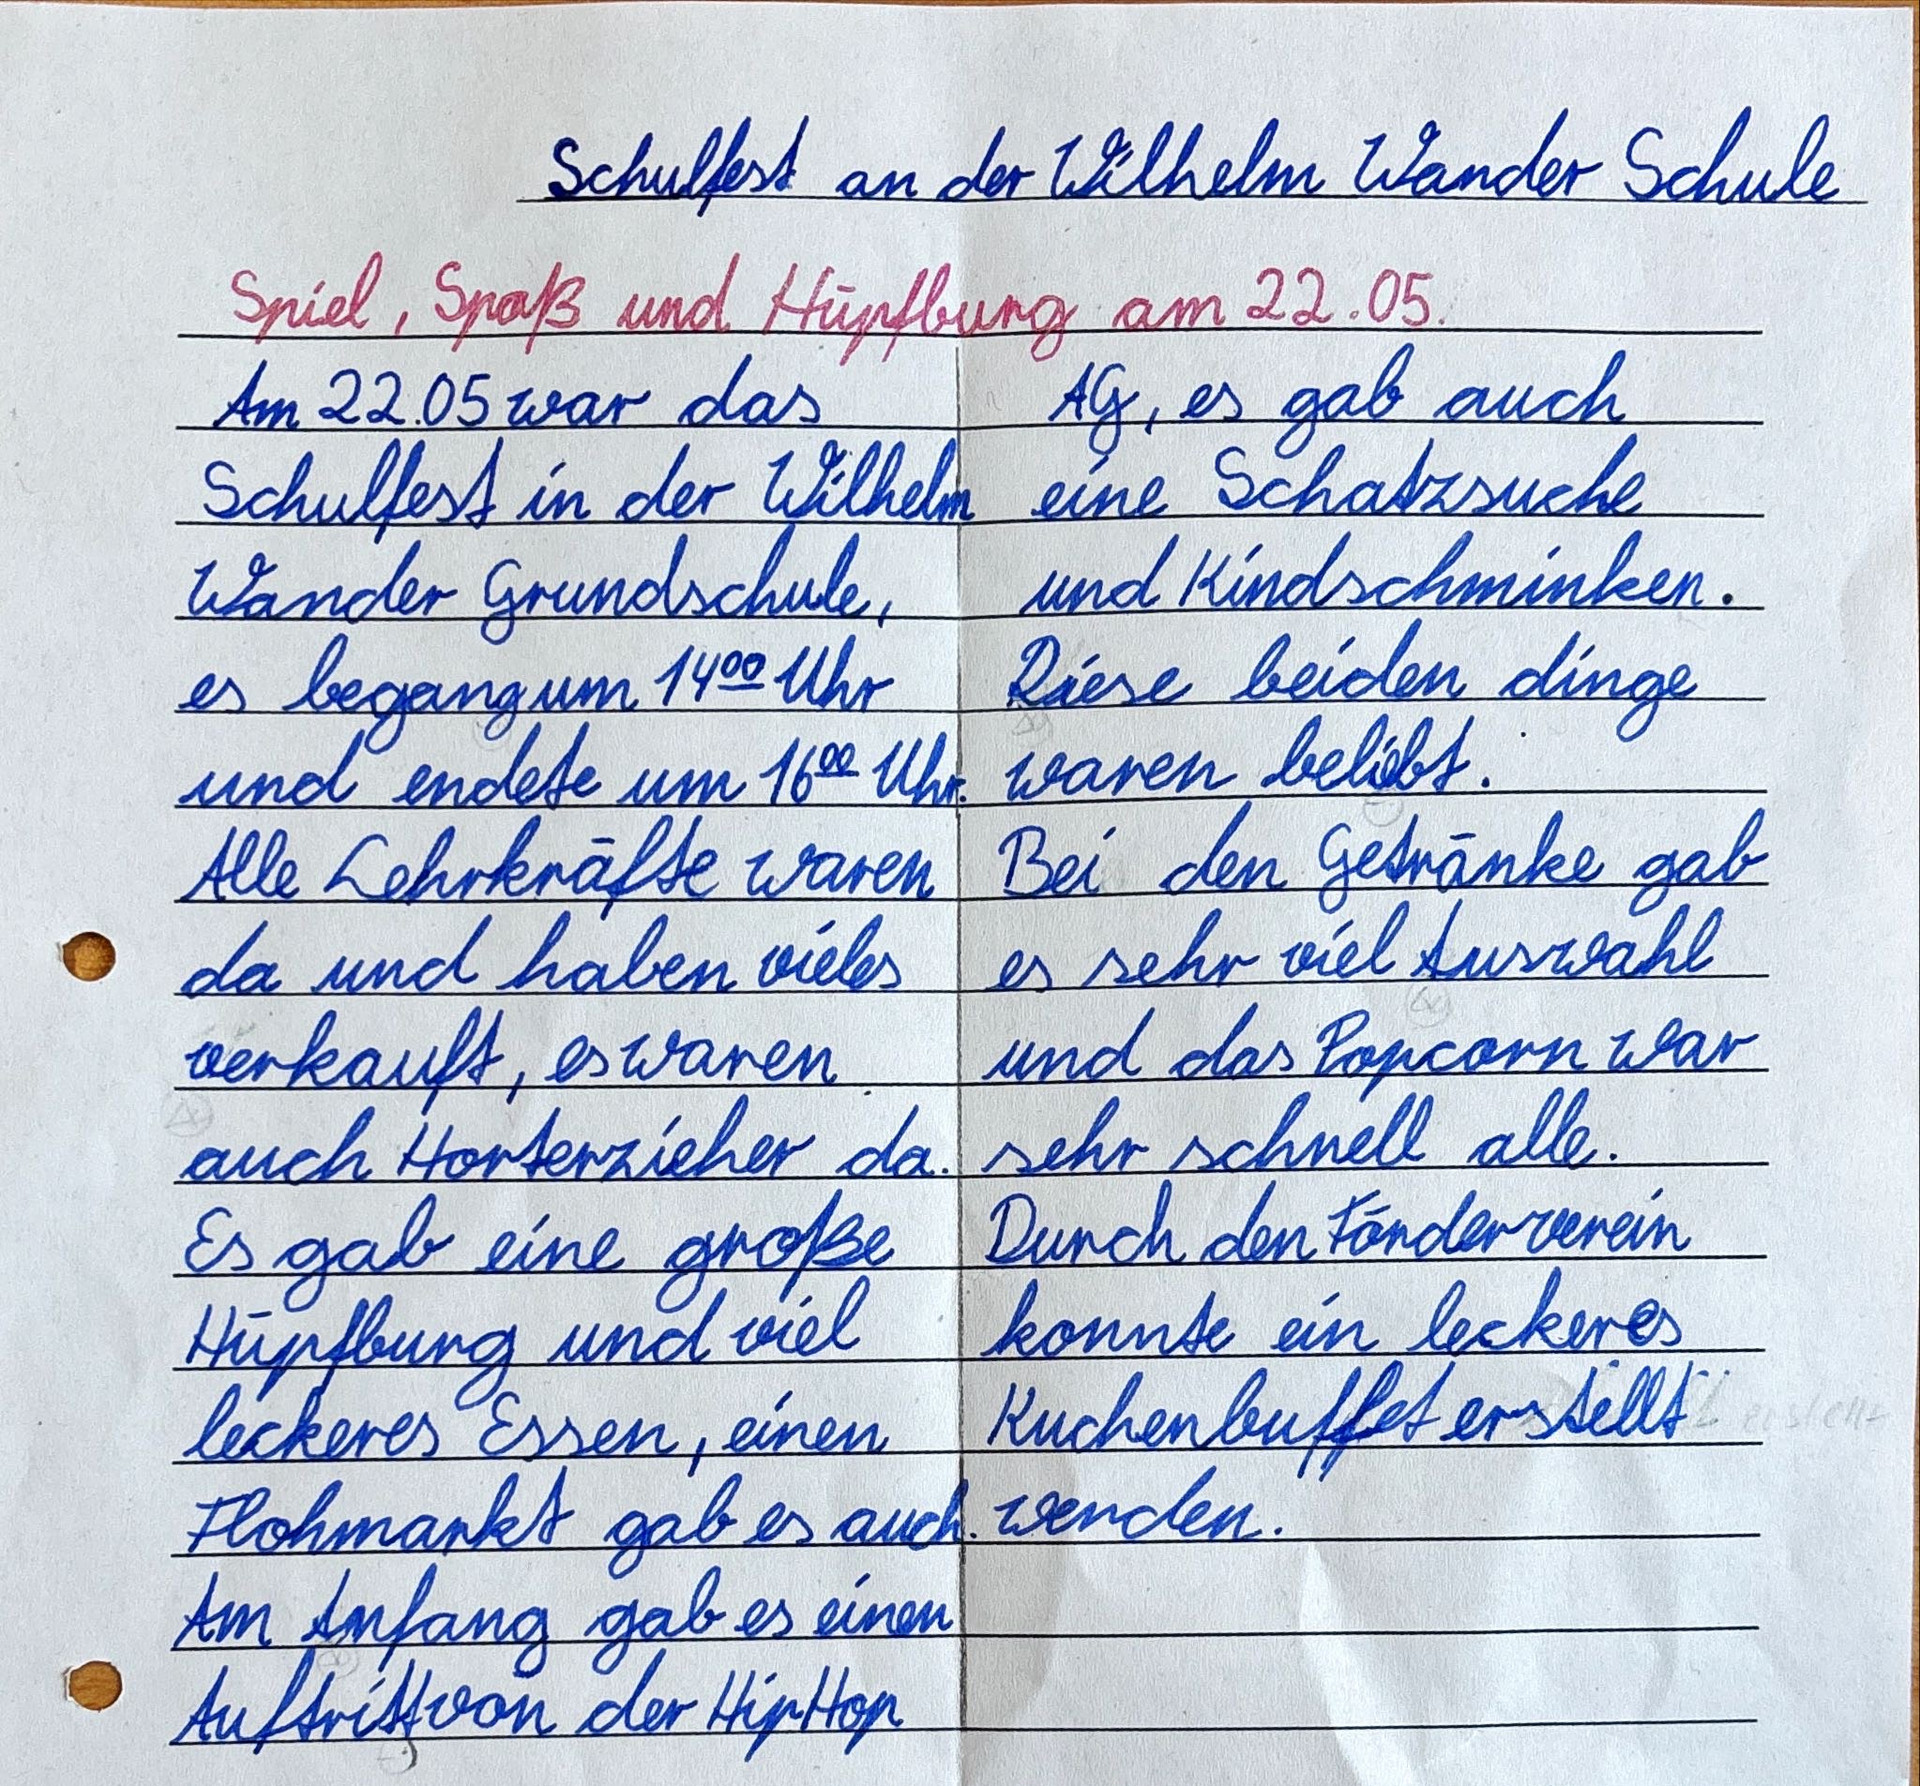 Schulfest an der Wilhelm Wander Schule
Spiel, Spaß und Hüpfburg am 22.05.
Am 22.05 war das
Schulfest in der Wilhelm
Wander Grundschule,
es begang um 14⁰⁰ Uhr
und endete um 16⁰⁰ Uhr.
Alle Lehrkräfte waren
da und haben vieles
verkauft, es waren
auch Horterzieher da.
Es gab eine große
Hüpfburg und viel
leckeres Essen, einen
Flohmarkt gab es auch.
Am Anfang gab es einen
Auftritt von der HipHop
AG, es gab auch
eine Schatzsuche
und Kindschminken.
Diese beiden dinge
waren beliebt.
Bei den Getränke gab
es sehr viel Auswahl
und das Popcorn war
sehr schnell alle.
Durch den Förderverein
konnte ein leckeres
Kuchenbuffet erstellt
werden.